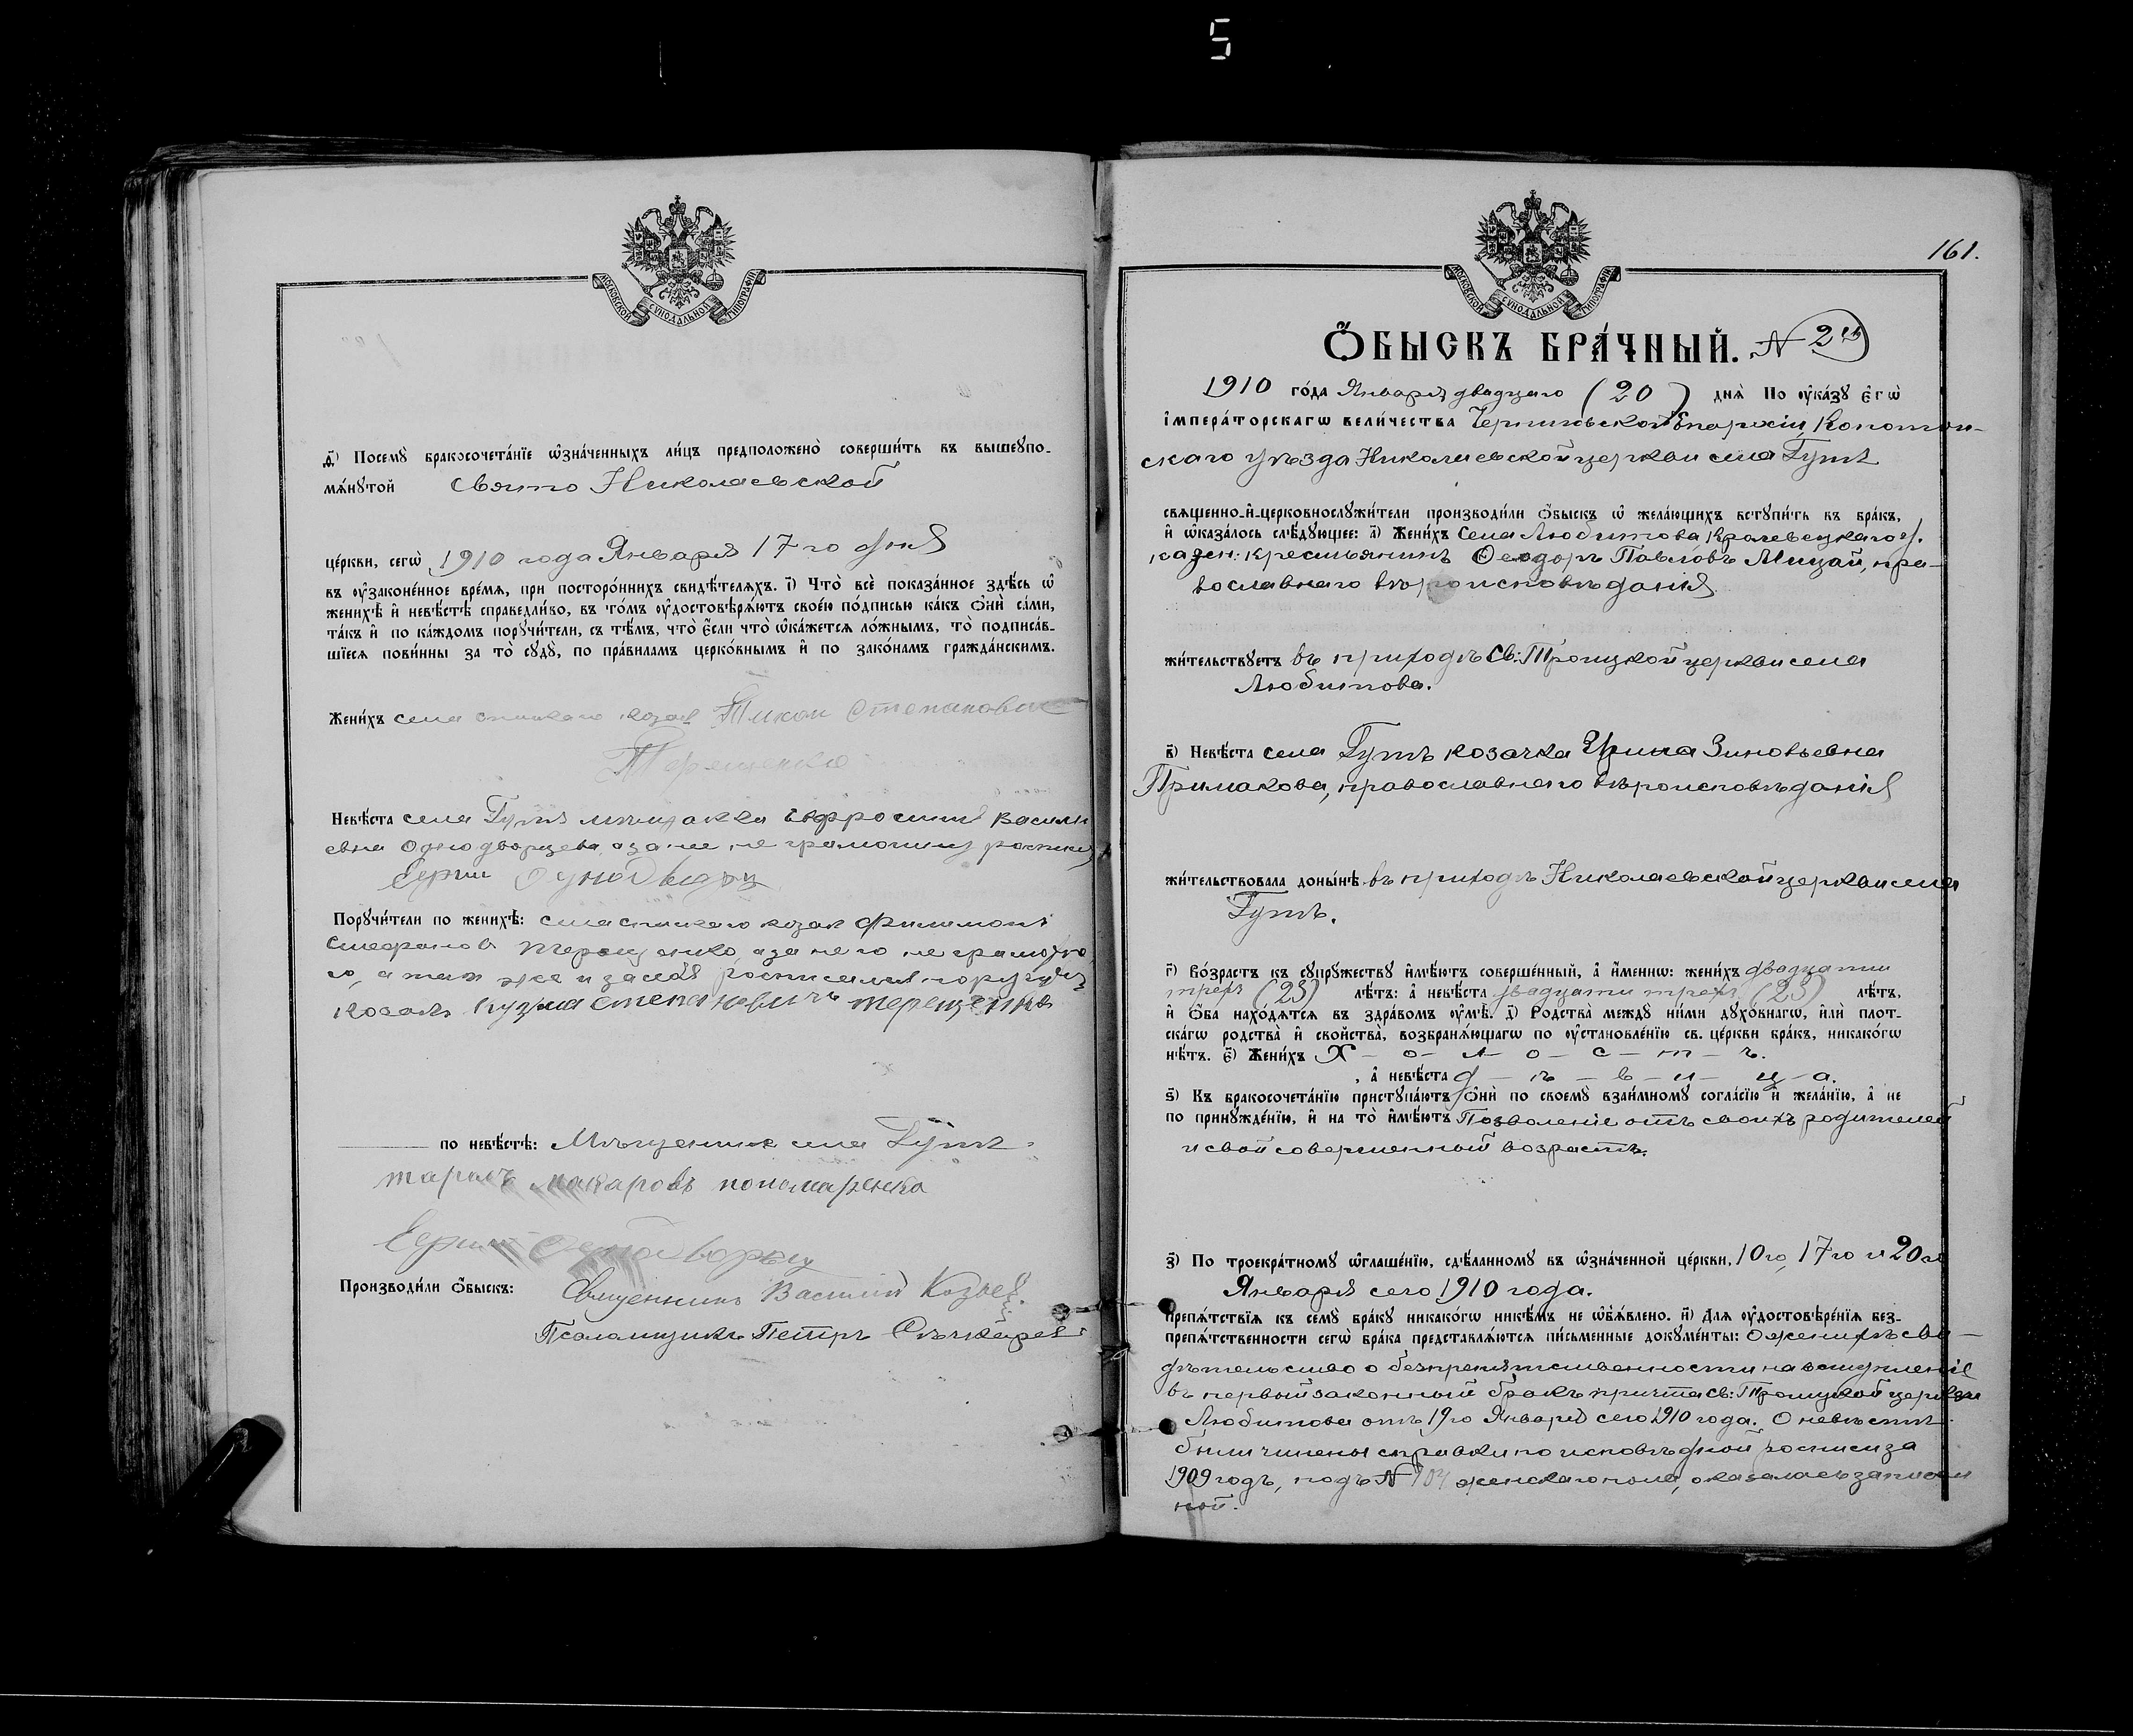 5
МОСКОВСКОЙ СѴНОДАЛЬНОЙ ТИПОГРАФІИ
ѳ҃) Посемꙋ̀ бракосочета́нїе ѡ҆зна́ченныхъ ли́цъ предположено̀ соверши́ть въ вышеꙋпо-
мѧ́нꙋтой Свято Николаевской
це́ркви, сегѡ̀ 1910 года Января 17го дня
въ ᲂу҆зако́ненное вре́мѧ, при посторо́ннихъ свидѣ́телѧхъ. і҃) Что̀ всѐ пока́занное здѣ́сь ѡ҆
женихѣ̀ и҆ невѣ́стѣ справедли́во, въ то́мъ ᲂу҆достовѣрѧ́ютъ свое́ю по́дписью ка́къ ѻ҆нѝ са́ми,
та́къ и҆ по ка́ждомъ порꙋчи́тели, съ тѣ́мъ, что̀ є҆́сли что̀ ѡ҆ка́жетсѧ ло́жнымъ, то̀ подписа́в-
шїесѧ пови́нны за то̀ сꙋдꙋ̀, по пра́виламъ церко́внымъ и҆ по зако́намъ гражда́нскимъ.
Жени́хъ села козак Тихон Степанович
Терещенко
Невѣ́ста села Гутъ мѣщанка Ефросинія Васили
евна Однодворцева, а за не не грамотну роспис
Сергий Однодворц
Порꙋчи́тели по женихѣ̀: козак Филимонъ
Стефанов Терещенко, а за него не грамотно
го, а так же и за себя росписался поручит.
козакъ Кузма Степановичъ терещенко
по невѣ́стѣ: Мѣщанин села Гутъ
тарасъ макаровъ пономаренко
Сергий Однодворец
Производи́ли ѻ҆́быскъ: Священникъ Василій
Псаломщикъ Петръ
161.
МОСКОВСКОЙ СѴНОДАЛЬНОЙ ТИПОГРАФІИ
Ѻ҆́БЫСКЪ БРА́ЧНЫЙ. № 2й
1910 го́да Января двадцаго (20) днѧ̀ По ᲂу҆ка́зꙋ є҆гѡ̀
і҆мпера́торскагѡ вели́чества Черниговской Епархіи, Конотоп-
скаго уѣзда Николаевской церкви села Гутъ
свѧщенно-и҆-церковнослꙋжи́тели производи́ли ѻ҆́быскъ ѡ҆ жела́ющихъ встꙋпи́ть въ бра́къ,
и҆ ѡ҆каза́лось слѣ́дꙋющее: а҃) Жени́хъ Села Любитова Кролевецкаго у.
казен: крестьянинъ Ѳеодоръ Павловъ Мицай, пра-
вославнаго вѣроисповѣданія
жи́тельствꙋетъ въ приходѣ Св: Троицкой церкви села
Любитова.
в҃) Невѣ́ста села Гутъ козачка Ирина Зиновьевна
Примакова, православнаго вѣроисповѣданія
жи́тельствовала доны́нѣ въ приходѣ Николаевской церкви села
Гутъ.
г҃) Во́зрастъ къ сꙋпрꙋ́жествꙋ и҆мѣ́ютъ соверше́нный, а҆ и҆́меннѡ: жени́хъ двадцати
трехъ (23) лѣ́тъ: а҆ невѣ́ста двадцати трехъ (23) лѣ́тъ,
и҆ ѻ҆́ба нахо́дѧтсѧ въ здра́вомъ ᲂу҆мѣ̀. д҃) Родства̀ междꙋ̀ ни́ми дꙋхо́внагѡ, и҆лѝ плот-
ска́гѡ родства̀ и҆ сво́йства, возбранѧ́ющагѡ по ᲂу҆становле́нїю св. це́ркви бра́къ, никако́гѡ
нѣ́тъ. є҃) Жени́хъ Х - о - л - о - с - т - ъ.
, а҆ невѣ́ста д - ѣ - в - и - ц - а.
ѕ҃) Къ бракосочета́нїю пристꙋпа́ютъ ѻ҆нѝ по своемꙋ̀ взаи́мномꙋ согла́сїю и҆ жела́нїю, а҆ не
по принꙋжде́нїю, и҆ на то̀ и҆мѣ́ютъ Позволеніе отъ своихъ родителей
и свой совершенный возрастъ.
з҃) По троекра́тномꙋ ѡ҆глаше́нїю, сдѣ́ланномꙋ въ ѡ҆зна́ченной це́ркви, 10го, 17го и 20го
Января сего 1910 года.
препѧ́тствїѧ къ семꙋ̀ бра́кꙋ никако́гѡ никѣ́мъ не ѡ҆б̾ѧ́влено. и҃) Длѧ̀ ᲂу҆достовѣре́нїѧ без-
препѧ́тственности сегѡ̀ бра́ка представлѧ́ютсѧ пи́сьменные докꙋме́нты: о женихѣ сви-
дѣтельство о безпрепятственности на вступленіе
въ первый законный бракъ причта Св: Троицкой церкви
Любитова отъ 19го Января сего 1910 года. О невѣстѣ
были чинены справки по исповѣдной росписи за
1909 годъ, подъ № 104 женскаго пола, оказалась записан
ной.